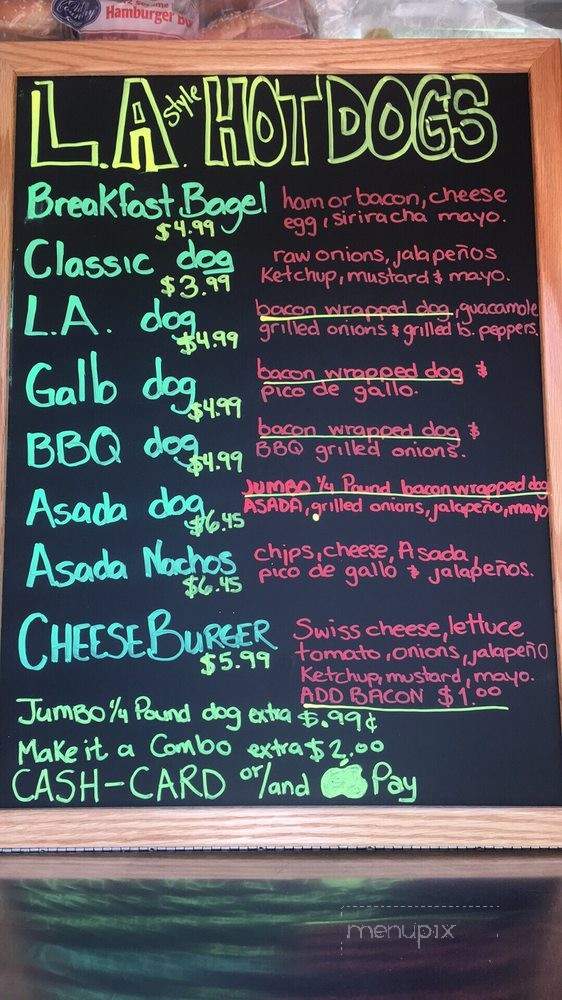 Hamburger Bu
L.A. style HOT DOGS
Breakfast Bagel ham or bacon, cheese
$4.99 egg, siriracha mayo.
Classic dog raw onions, jalapeños
$3.99 Ketchup, mustard & mayo.
L.A. dog bacon wrapped dog, guacamole
$4.99 grilled onions & grilled b. peppers.
Gallo dog bacon wrapped dog &
$4.99 pico de gallo.
BBQ dog bacon wrapped dog &
$4.99 BBQ grilled onions.
Asada dog JUMBO 1/4 Pound bacon wrapped dog
$6.45 ASADA, grilled onions, jalapeño, mayo
Asada Nachos chips, cheese, Asada,
$6.45 pico de gallo & jalapeños.
CHEESEBURGER Swiss cheese, lettuce
$5.99 tomato, onions, jalapeño
Ketchup, mustard, mayo.
ADD BACON $1.00
JUMBO 1/4 Pound dog extra $.99¢
Make it a Combo extra $2.00
CASH-CARD or/and Pay
menupix